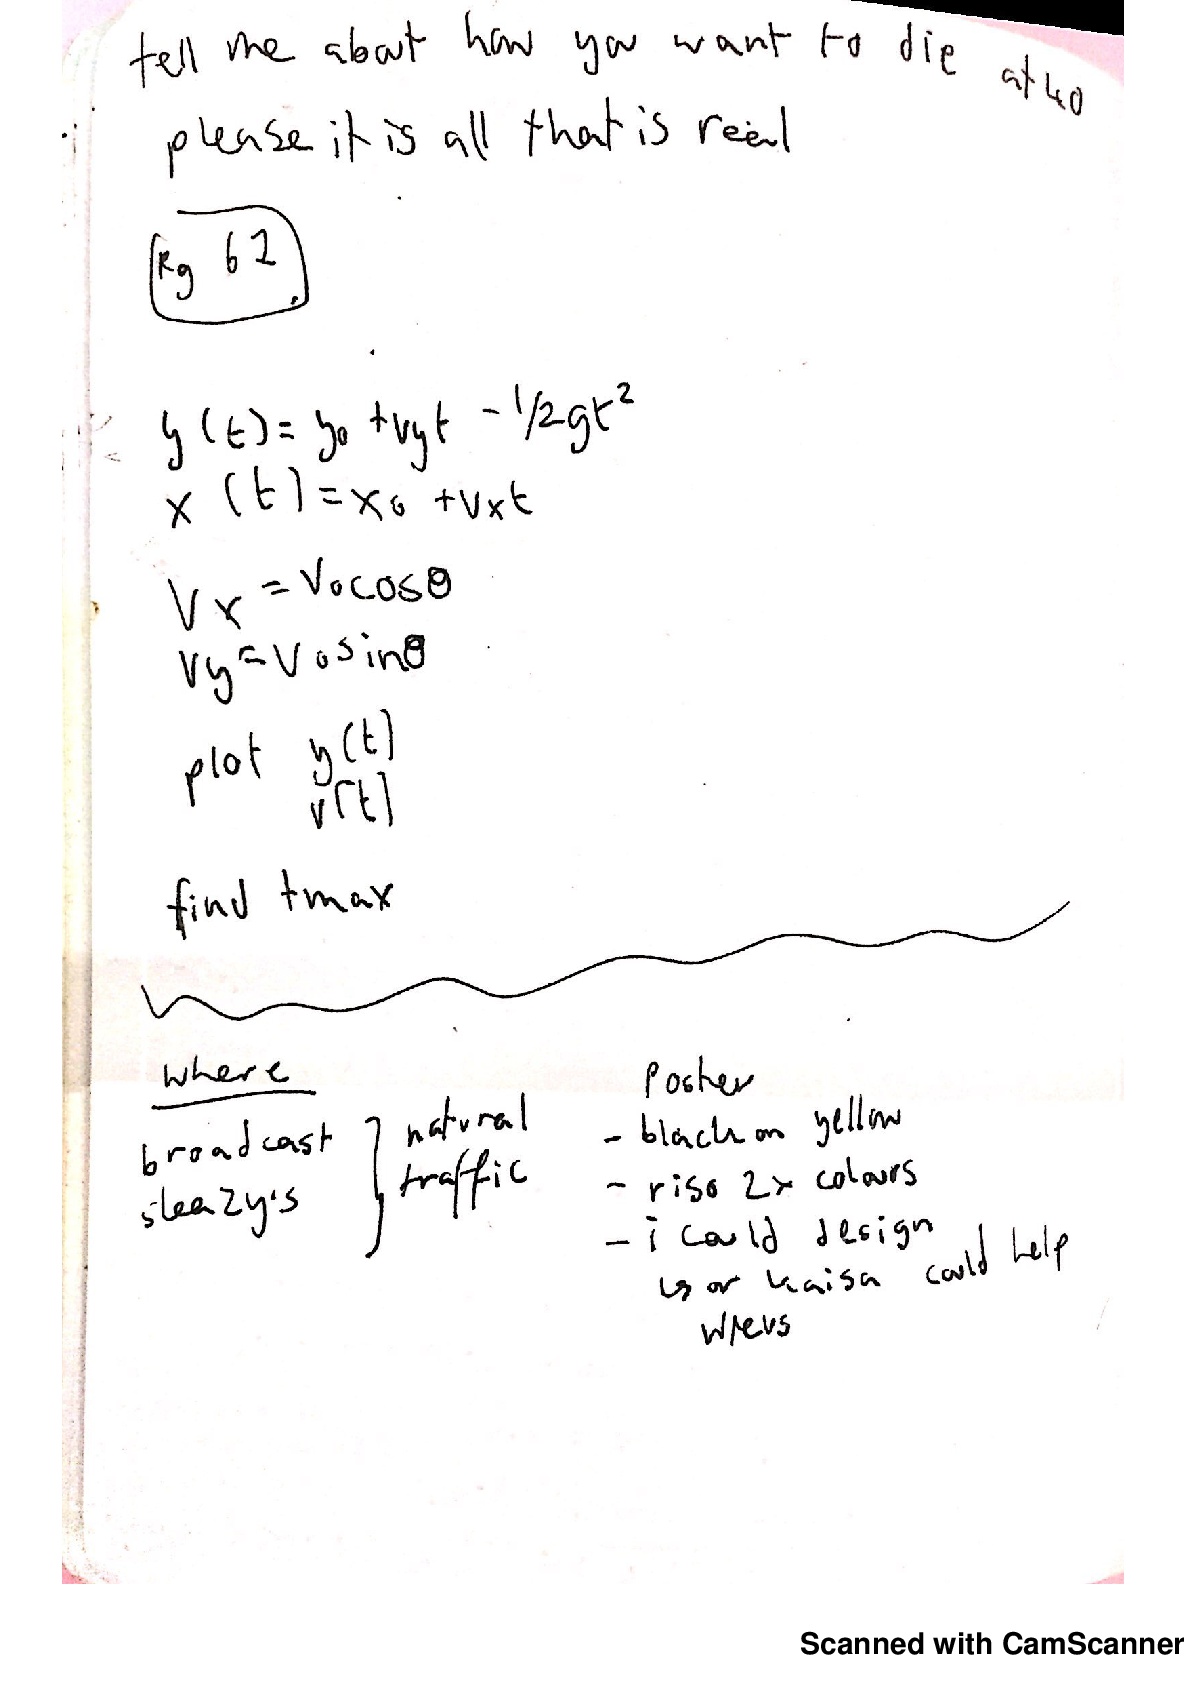 tell me about how you want to die at 40
please it is all that is real
Pg 62
y(t)= y0 +vyt -1/2gt²
x (t)=x0 +vxt
Vx =V0cosθ
vy=V0sinθ
plot y(t)
v[t]
find tmax
where
broadcast
sleazy's
natural
traffic
Poster
- black on yellow
- riso 2x colours
- i could design
↳ or kaisa could help
Scanned with CamScanner